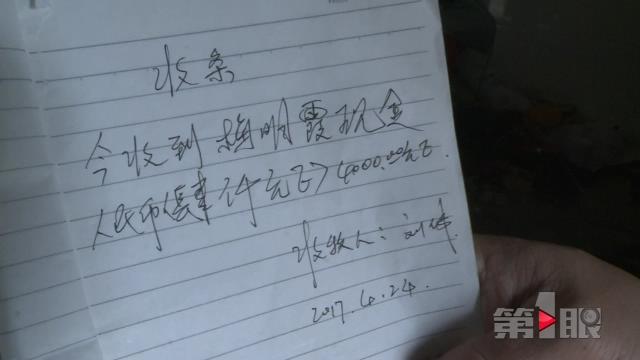 收条
今收到梅明霞现金
人民币肆仟元正(4000.00元正
收款人:刘伟
2017.4.24.
第1眼